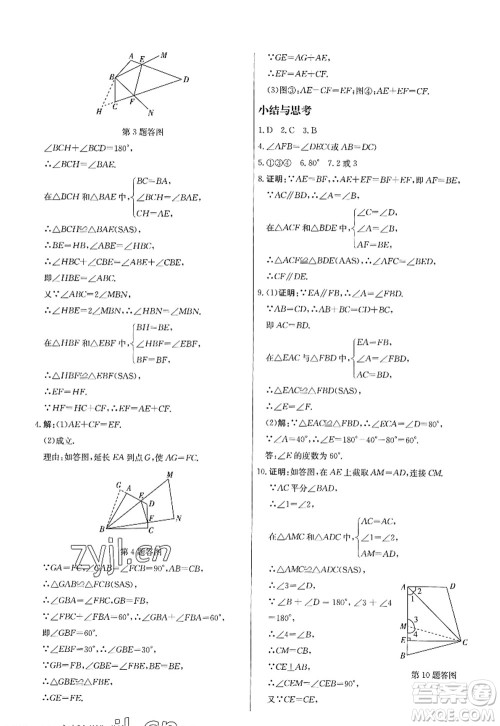 第3题答图
∠BCH+∠BCD=180°,
∴∠BCH=∠BAE.
在△BCH和△BAE中,{BC=BA,
∠BCH=∠BAE,
CH=AE,
∴△BCH≌△BAE(SAS),
∴BE=HB,∠ABE=∠HBC,
∴∠HBC+∠CBE=∠ABE+∠CBE,
即∠HBE=∠ABC.
又∵∠ABC=2∠MBN,
∴∠HBE=2∠MBN,∴∠HBF=∠EBF.
在△HBF和△EBF中,{BH=BE,
∠HBF=∠EBF,
BF=BF,
∴△HBF≌△EBF(SAS),
∴EF=HF.
∵HF=HC+CF=AE+CF,
∴EF=AE+CF.
4.解:(1)AE+CF=EF.
(2)成立.
理由:如答图,延长EA到点G,
使AG=FC.
第4题答图
∵GA=FC,∠GAB=∠FCB=90°,AB=CB,
∴△GAB≌△FCB(SAS),
∴∠GBA=∠FBC,GB=FB.
∵∠FBC+∠FBA=∠ABC=120°,
∴∠GBA+∠FBA=∠GBF=120°.
∵∠MBN=60°,
∴∠GBE=60°,
即∠GBF=60°.
在△GBE和△FBE中,{GB=FB,
∠GBE=∠FBE,
BE=BE,
∴△GBE≌△FBE(SAS),
∴GE=FE.
∵GE=AG+AE,
∴GE=CF+AE,
∴EF=AE+CF.
(3)图③:AE−CF=EF.图④:AE+EF=CF.
小结与思考
1.D 2.C 3.B
4.∠AFB=∠DEC(或AB=DC)
5.①③④ 6.80° 7.2或3
8.证明:∵AF=BE,∴AE=BF.
∵AC∥BD,∴∠A=∠B.
在△ACF和△BDE中,{AC=BD,
∠A=∠B,
AF=BE,
∴△ACF≌△BDE(SAS),
∴CF=DE.
9.(1)证明:∵EA∥FB,∴∠A=∠FBD.
∵AB=CD,∴AB+BC=CD+BC,
即AC=BD.
在△EAC与△FBD中,{EA=FB,
∠A=∠FBD,
AC=BD,
∴△EAC≌△FBD(SAS),
∴∠E=∠F.
(2)解:∵△EAC≌△FBD,∴∠ECA=∠D=80°.
∵∠A=40°,∴∠E=180°−40°−80°=60°.
答:∠E的度数为60°.
10.证明:如答图,在AE上截取AM=AD,连接CM.
∵AC平分∠BAD,
∴∠1=∠2.
在△AMC和△ADC中,{AC=AC,
∠1=∠2,
AM=AD,
∴△AMC≌△ADC(SAS),
∴∠3=∠D.
∵∠B+∠D=180°,∠3+∠4=180°,
∴∠4=∠B,
∴CM=CB.
∵CE⊥AB,
∴ME=EB.
第10题答图